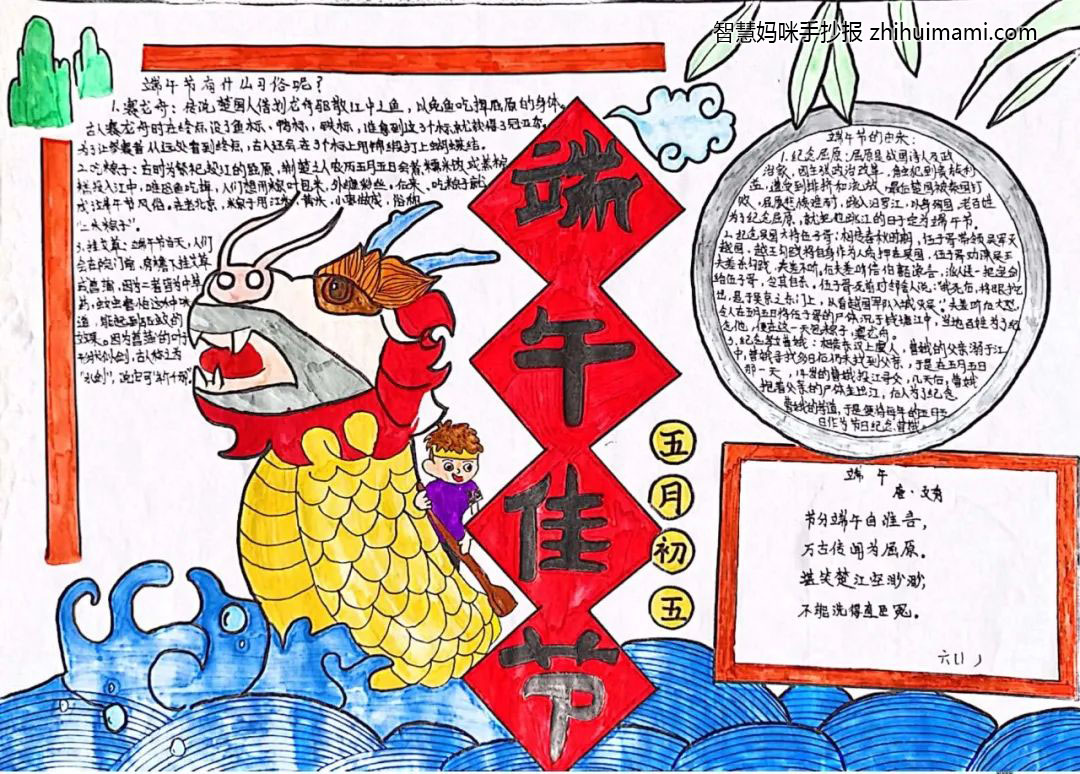 智慧妈咪手抄报 zhihuimami.com
端午节有什么习俗呢？
1.赛龙舟：传说楚国人借划龙舟驱散江中之鱼，以免鱼吃掉屈原的身体。
古人赛龙舟时在终点设了鱼标、鸭标、铁标，谁拿到这3个标就获得了冠亚季。
为了让参赛者从远处看到终点，古人还会在3个标上用绸缎打上蝴蝶结。
2.吃粽子：古时为祭祀投江的屈原，荆楚之人农历五月五日会将糯米饭或蒸粽
糕投入江中，唯恐鱼吃掉，人们想用粽叶包米，外缠彩丝。后来，吃粽子就
成江端午节风俗。在老北京，粽子用江米、黄米、小枣做成，俗称
"江米粽子"。
3.挂艾草：端午节当天，人们
会在院门前、房檐下挂艾草
或菖蒲，因为二者皆为中草
药，蚊虫害怕这水中味
道，能起到驱蚊的
效果。因为菖蒲的叶子
形状似剑，古人称之为
"水剑"，说它可"斩千邪"
端
午
佳
节
五
月
初
五
端午节的由来：
1.纪念屈原：屈原是战国诗人及政
治家，因主张政治改革，触犯到贵族利
益，遭受到排挤和流放，最后楚国被秦国打
败，屈原悲愤难耐，跳入汨罗江，以身殉国，老百姓
为了纪念屈原，就把他跳江的日子定为端午节。
2.纪念吴国大将伍子胥：相传春秋时期，伍子胥带领吴军灭
越国，越王勾践将自身作为人质押在吴国，伍子胥劝谏吴王
夫差杀勾践，夫差不听。后夫差听信伯嚭谗言，派人送一把宝剑
给伍子胥，令其自杀，伍子胥死前对邻舍人说："我死后，将眼挖
出，悬于吴京之东门上，从看越国军队入城灭吴。"夫差听后大怒，
令人在五月五日将伍子胥的尸体沉于钱塘江中，当地百姓为了纪
念他，便在这一天包粽子，赛龙舟。
3.纪念孝女曹娥：相传东汉上虞人，曹娥的父亲溺于江
中，曹娥寻找多日后仍未找到父亲，于是在五月五日
那一天，14岁的曹娥投江寻父，几天后，曹娥
抱着父亲的尸体在出江，后人为了纪念
曹娥的孝道，于是便将每年的五月五
日作为节日纪念曹娥。
端 午
唐·文秀
节分端午自谁言，
万古传闻为屈原。
堪笑楚江空渺渺，
不能洗得直臣冤。
六(1)